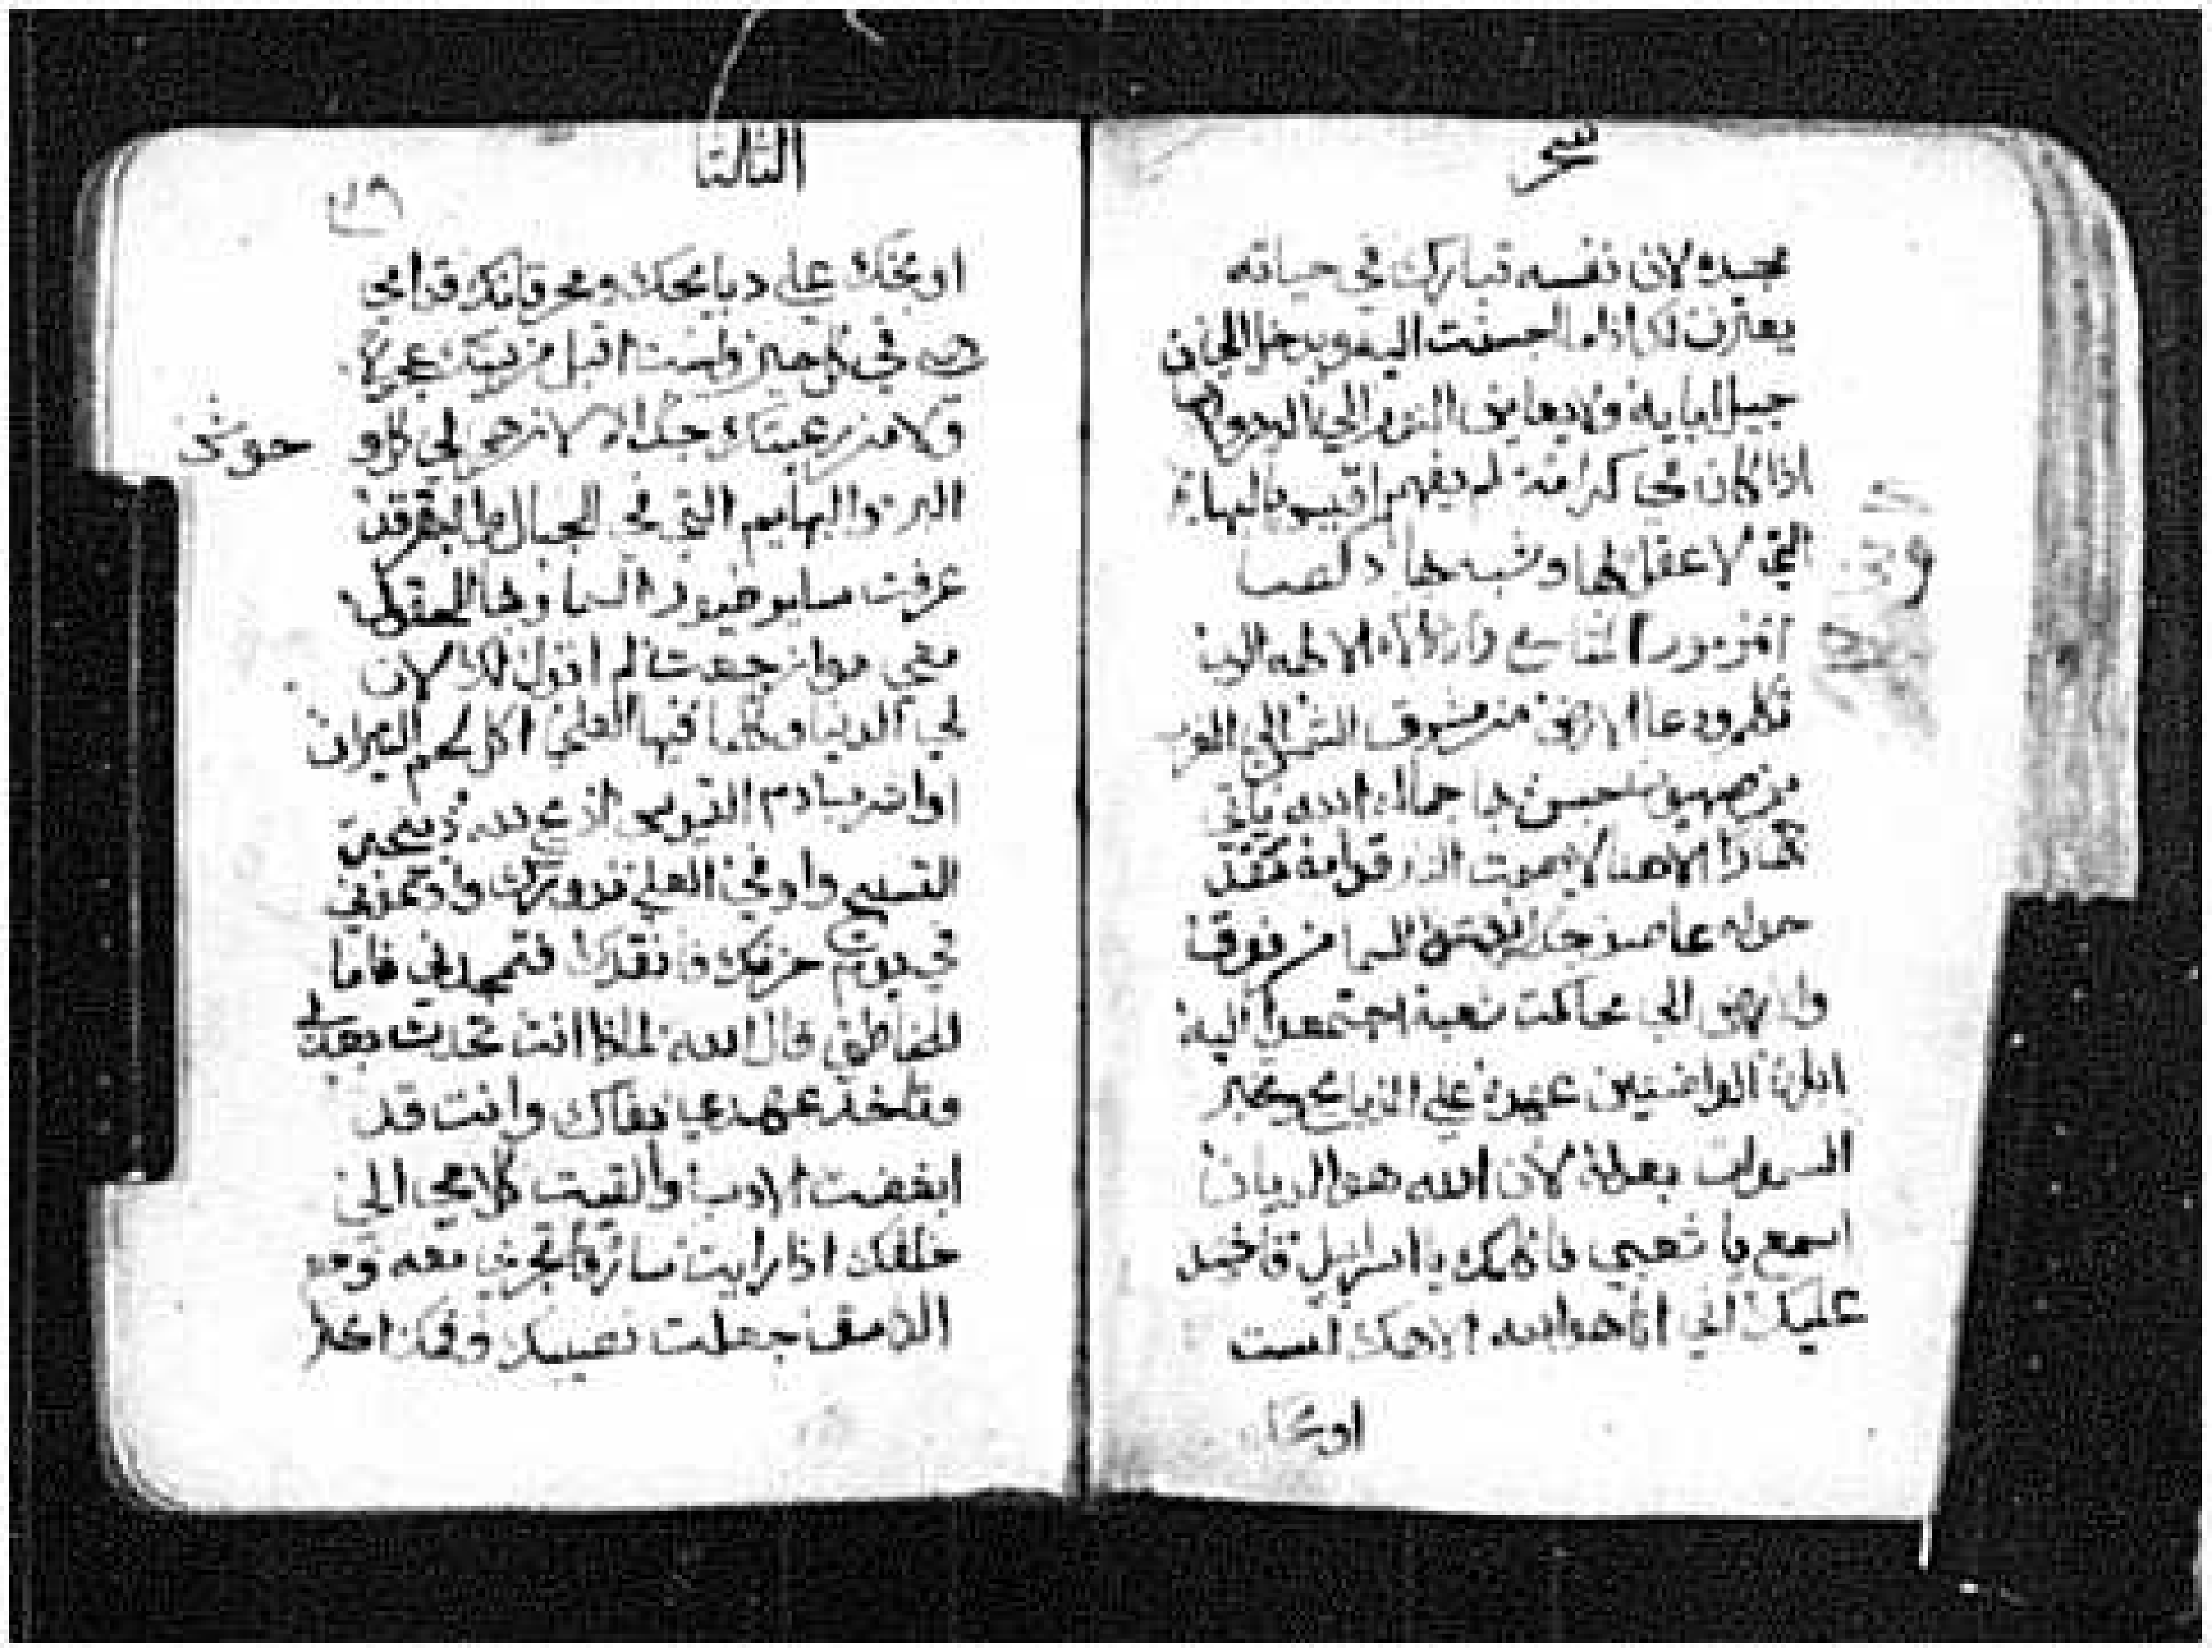 سحر
مجده لان نفسه تبارك في حياته
يعترف لك اذا ما احسنت اليه ويدخل الي
جيل ابايه ولا يعاين النور الي الدهر
اذا كان في كرامة لم يفهم اقيس بالبهايم
التي لا عقل لها وشبه بها
مزمور الاه الالهه الرب
تكلم ودعا الارض من مشرق الشمس الي
من صهيون حسن بها جماله الله ياتي
الاهنا لا يصمت النار قدامه تتقد
حوله عاصف جدا السما من فوق
والارض الي محاكمت شعبه اجتمعوا اليه
ابراره الواضعين عهده علي الذبايح وتخبر
السموات بعدله لان الله هو الديان
اسمع يا شعبي فاكلمك يا اسرايل فاشهد
عليك اني انا هو الله الاهك لست
اوبخك
الثالثا
اوبخك علي دبايحك ومحرقاتك قدامي
هي في كل حين ولست اقبل من بيتك عجول
ولا من رعيتك جدا لان هو لي كل و
حوش
البر والبهايم التي في الجبال والبقر قد
عرفت ساير طيور السما وبها الحقل
معي هو ان جعت لم اقول لك لان
لي الدنيا وكلما فيها العلي اكل لحم التيران
او اشرب دم التيوس اذبح لله ذبيحة
التسبيح واوفي العلي ندورك وادعني
في يوم حزنك فانقدك فتمجدني فاما
للخاطي قال الله لماذا انت تحدث بعدلي
وتاخذ عهدي بفاك وانت قد
ابغضت الادب والقيت كلامي الي
خلفك اذا رايت سارقا تجري معه ومع
الفاسق جعلت نصيبك